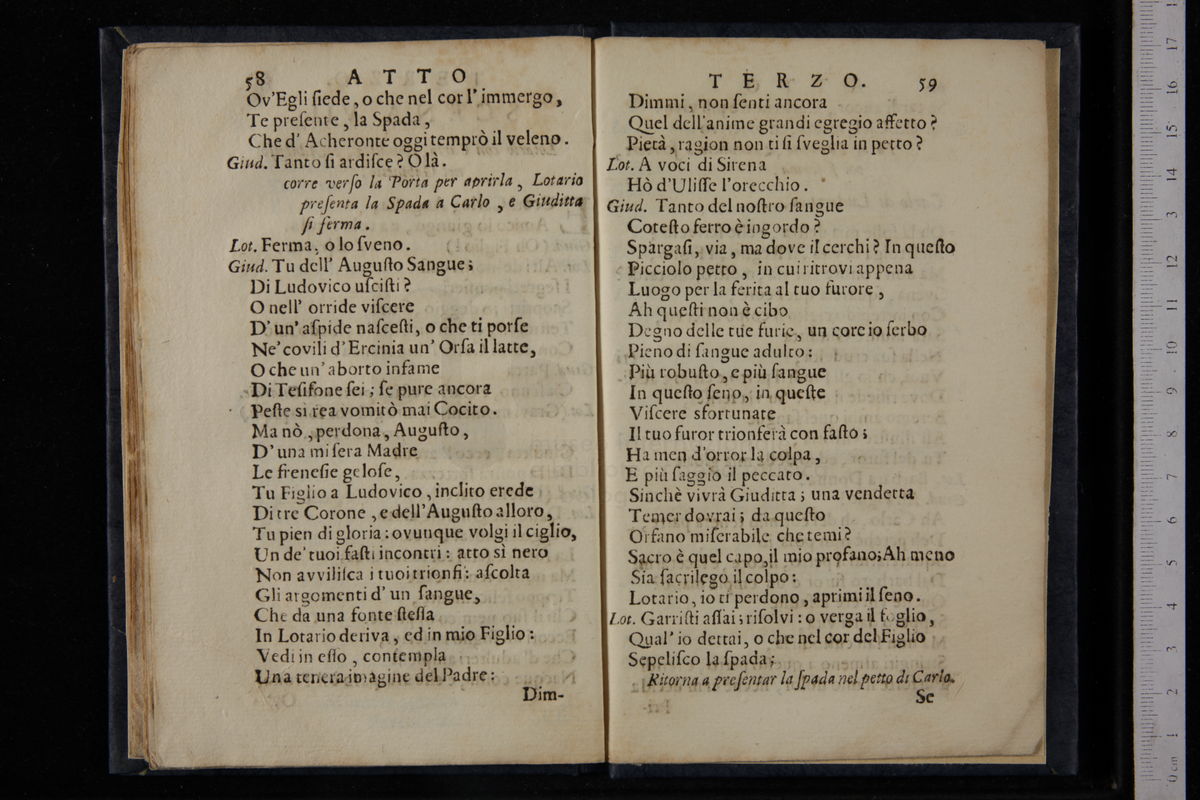 58 ATTO
Ov'Egli ſiede, o che nel cor l'immergo,
Te preſente, la Spada,
Che d' Acheronte oggi temprò il veleno.
Giud. Tanto ſi ardiſce? Olà.
corre verſo la Porta per aprirla, Lotario
preſenta la Spada a Carlo, e Giuditta
ſi ferma.
Lot. Ferma, o lo ſveno.
Giud. Tu dell' Auguſto Sangue;
Di Ludovico uſciſti?
O nell' orride viſcere
D' un' aſpide naſceſti, o che ti porſe
Ne' covili d' Ercinia un' Orſa il latte,
O che un' aborto infame
Di Teſifone ſei; ſe pure ancora
Peſte sì rea vomitò mai Cocito.
Ma nò, perdona, Auguſto,
D' una miſera Madre
Le freneſie geloſe,
Tu Figlio a Ludovico, inclito erede
Di tre Corone, e dell'Auguſto alloro,
Tu pien di gloria: ovunque volgi il ciglio,
Un de' tuoi faſti incontri: atto sì nero
Non avviliſca i tuoi trionfi: aſcolta
Gli argomenti d' un ſangue,
Che da una fonte ſteſſa
In Lotario deriva, ed in mio Figlio:
Vedi in eſſo, contempla
Una tenera imagine del Padre:
Dim-
TERZO. 59
Dimmi, non ſenti ancora
Quel dell'anime grandi egregio affetto?
Pietà, ragion non ti ſi ſveglia in petto?
Lot. A voci di Sirena
Hò d'Uliſſe l'orecchio.
Giud. Tanto del noſtro ſangue
Coteſto ferro è ingordo?
Spargaſi, via, ma dove il cerchi? In queſto
Picciolo petto, in cui ritrovi appena
Luogo per la ferita al tuo furore,
Ah queſti non è cibo
Degno delle tue furie, un core io ſerbo
Pieno di ſangue adulto:
Più robuſto, e più ſangue
In queſto ſeno, in queſte
Viſcere sfortunate
Il tuo furor trionferà con faſto;
Ha men d'orror la colpa,
E più ſaggio il peccato.
Sinchè vivrà Giuditta; una vendetta
Temer dovrai; da queſto
Orfano miſerabile che temi?
Sacro è quel capo, il mio profano; Ah meno
Sia ſacrilego il colpo:
Lotario, io ti perdono, aprimi il ſeno.
Lot. Garriſti aſſai; riſolvi: o verga il foglio,
Qual' io dettai, o che nel cor del Figlio
Sepeliſco la ſpada;
Ritorna a preſentar la ſpada nel petto di Carlo.
Se
0 cm 1 2 3 4 5 6 7 8 9 10 11 12 13 14 15 16 17